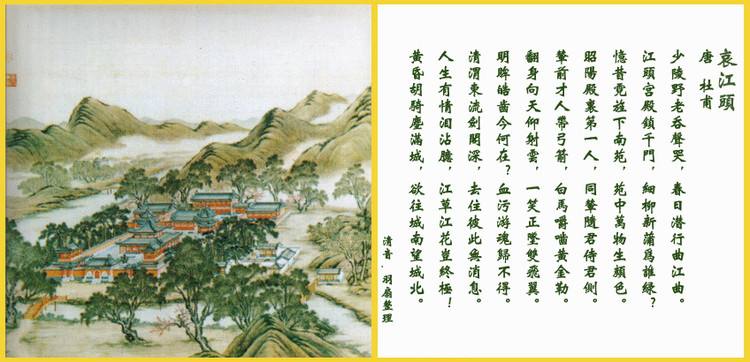 哀江頭
唐 杜甫
少陵野老吞聲哭，春日潛行曲江曲。
江頭宮殿鎖千門，細柳新蒲爲誰綠？
憶昔霓旌下南苑，苑中萬物生顏色。
昭陽殿裏第一人，同輦隨君侍君側。
輦前才人帶弓箭，白馬嚼嚙黃金勒。
翻身向天仰射雲，一笑正墜雙飛翼。
明眸皓齒今何在？血污游魂歸不得。
清渭東流劍閣深，去住彼此無消息。
人生有情淚沾臆，江草江花豈終極！
黃昏胡騎塵滿城，欲往城南望城北。
清音．羽扇整理